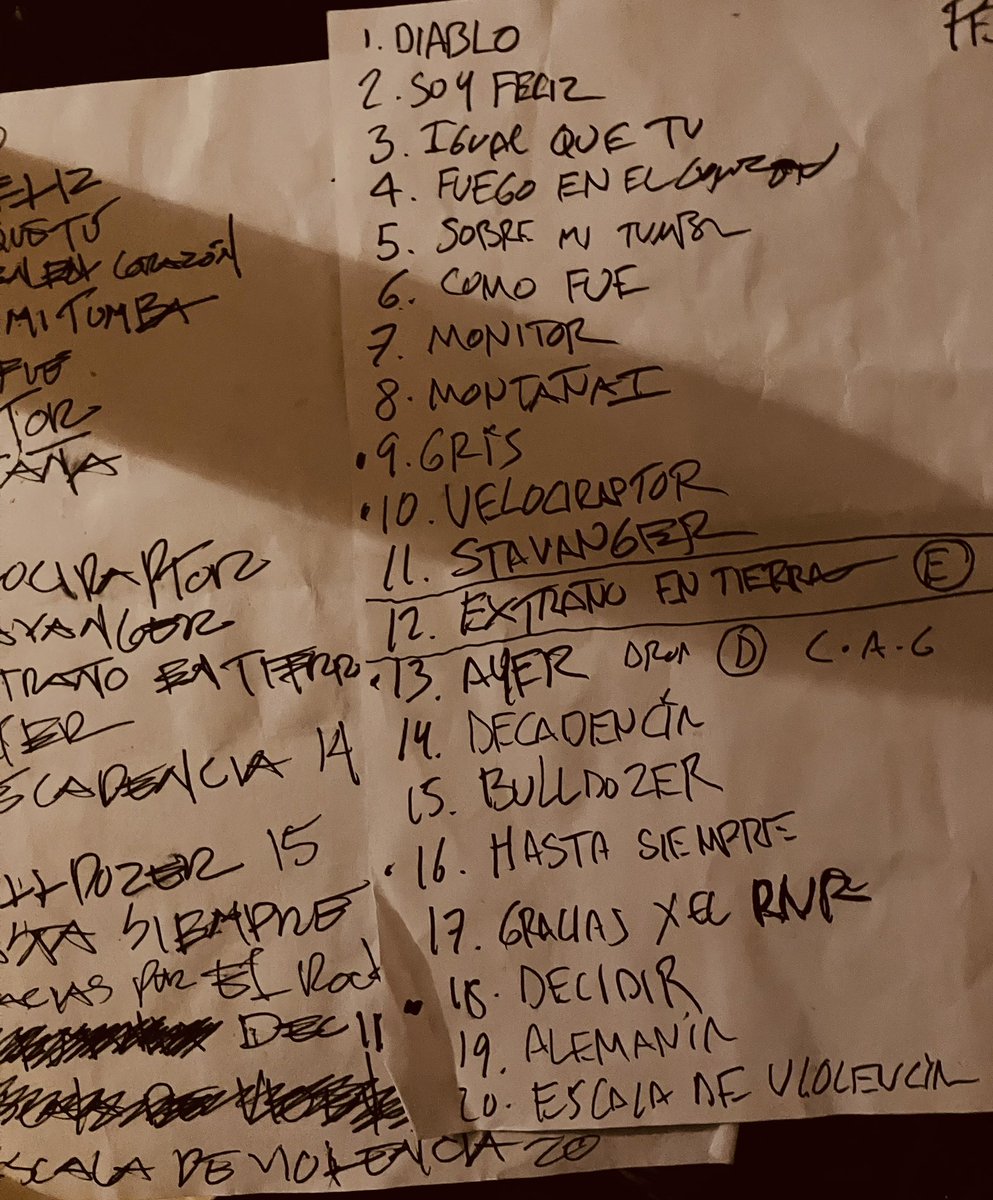 1. DIABLO
2. SOY FELIZ
3. IGUAL QUE TU
4. FUEGO EN EL CORAZON
5. SOBRE MI TUMBA
6. COMO FUE
7. MONITOR
8. MONTAÑA I
9. GRIS
10. VELOCIRAPTOR
11. STAVANGER
12. EXTRAÑO EN TIERRA E
13. AYER DROP D C.A.G
14. DECADENCIA
15. BULLDOZER
16. HASTA SIEMPRE
17. GRACIAS X EL RNR
18. DECIDIR
19. ALEMANIA
20. ESCALA DE VIOLENCIA
QUE TU
EN EL CORAZÓN
MI TUMBA
FUE
TOR
TAÑA
OCIRAPTOR
AVANGER
TRAÑO EN TIERR
YER
ESCADENCIA 14
DOZER 15
STA SIEMPRE
ACIAS POR EL ROCK
DECI
ESCALA DE VIOLENCIA 20